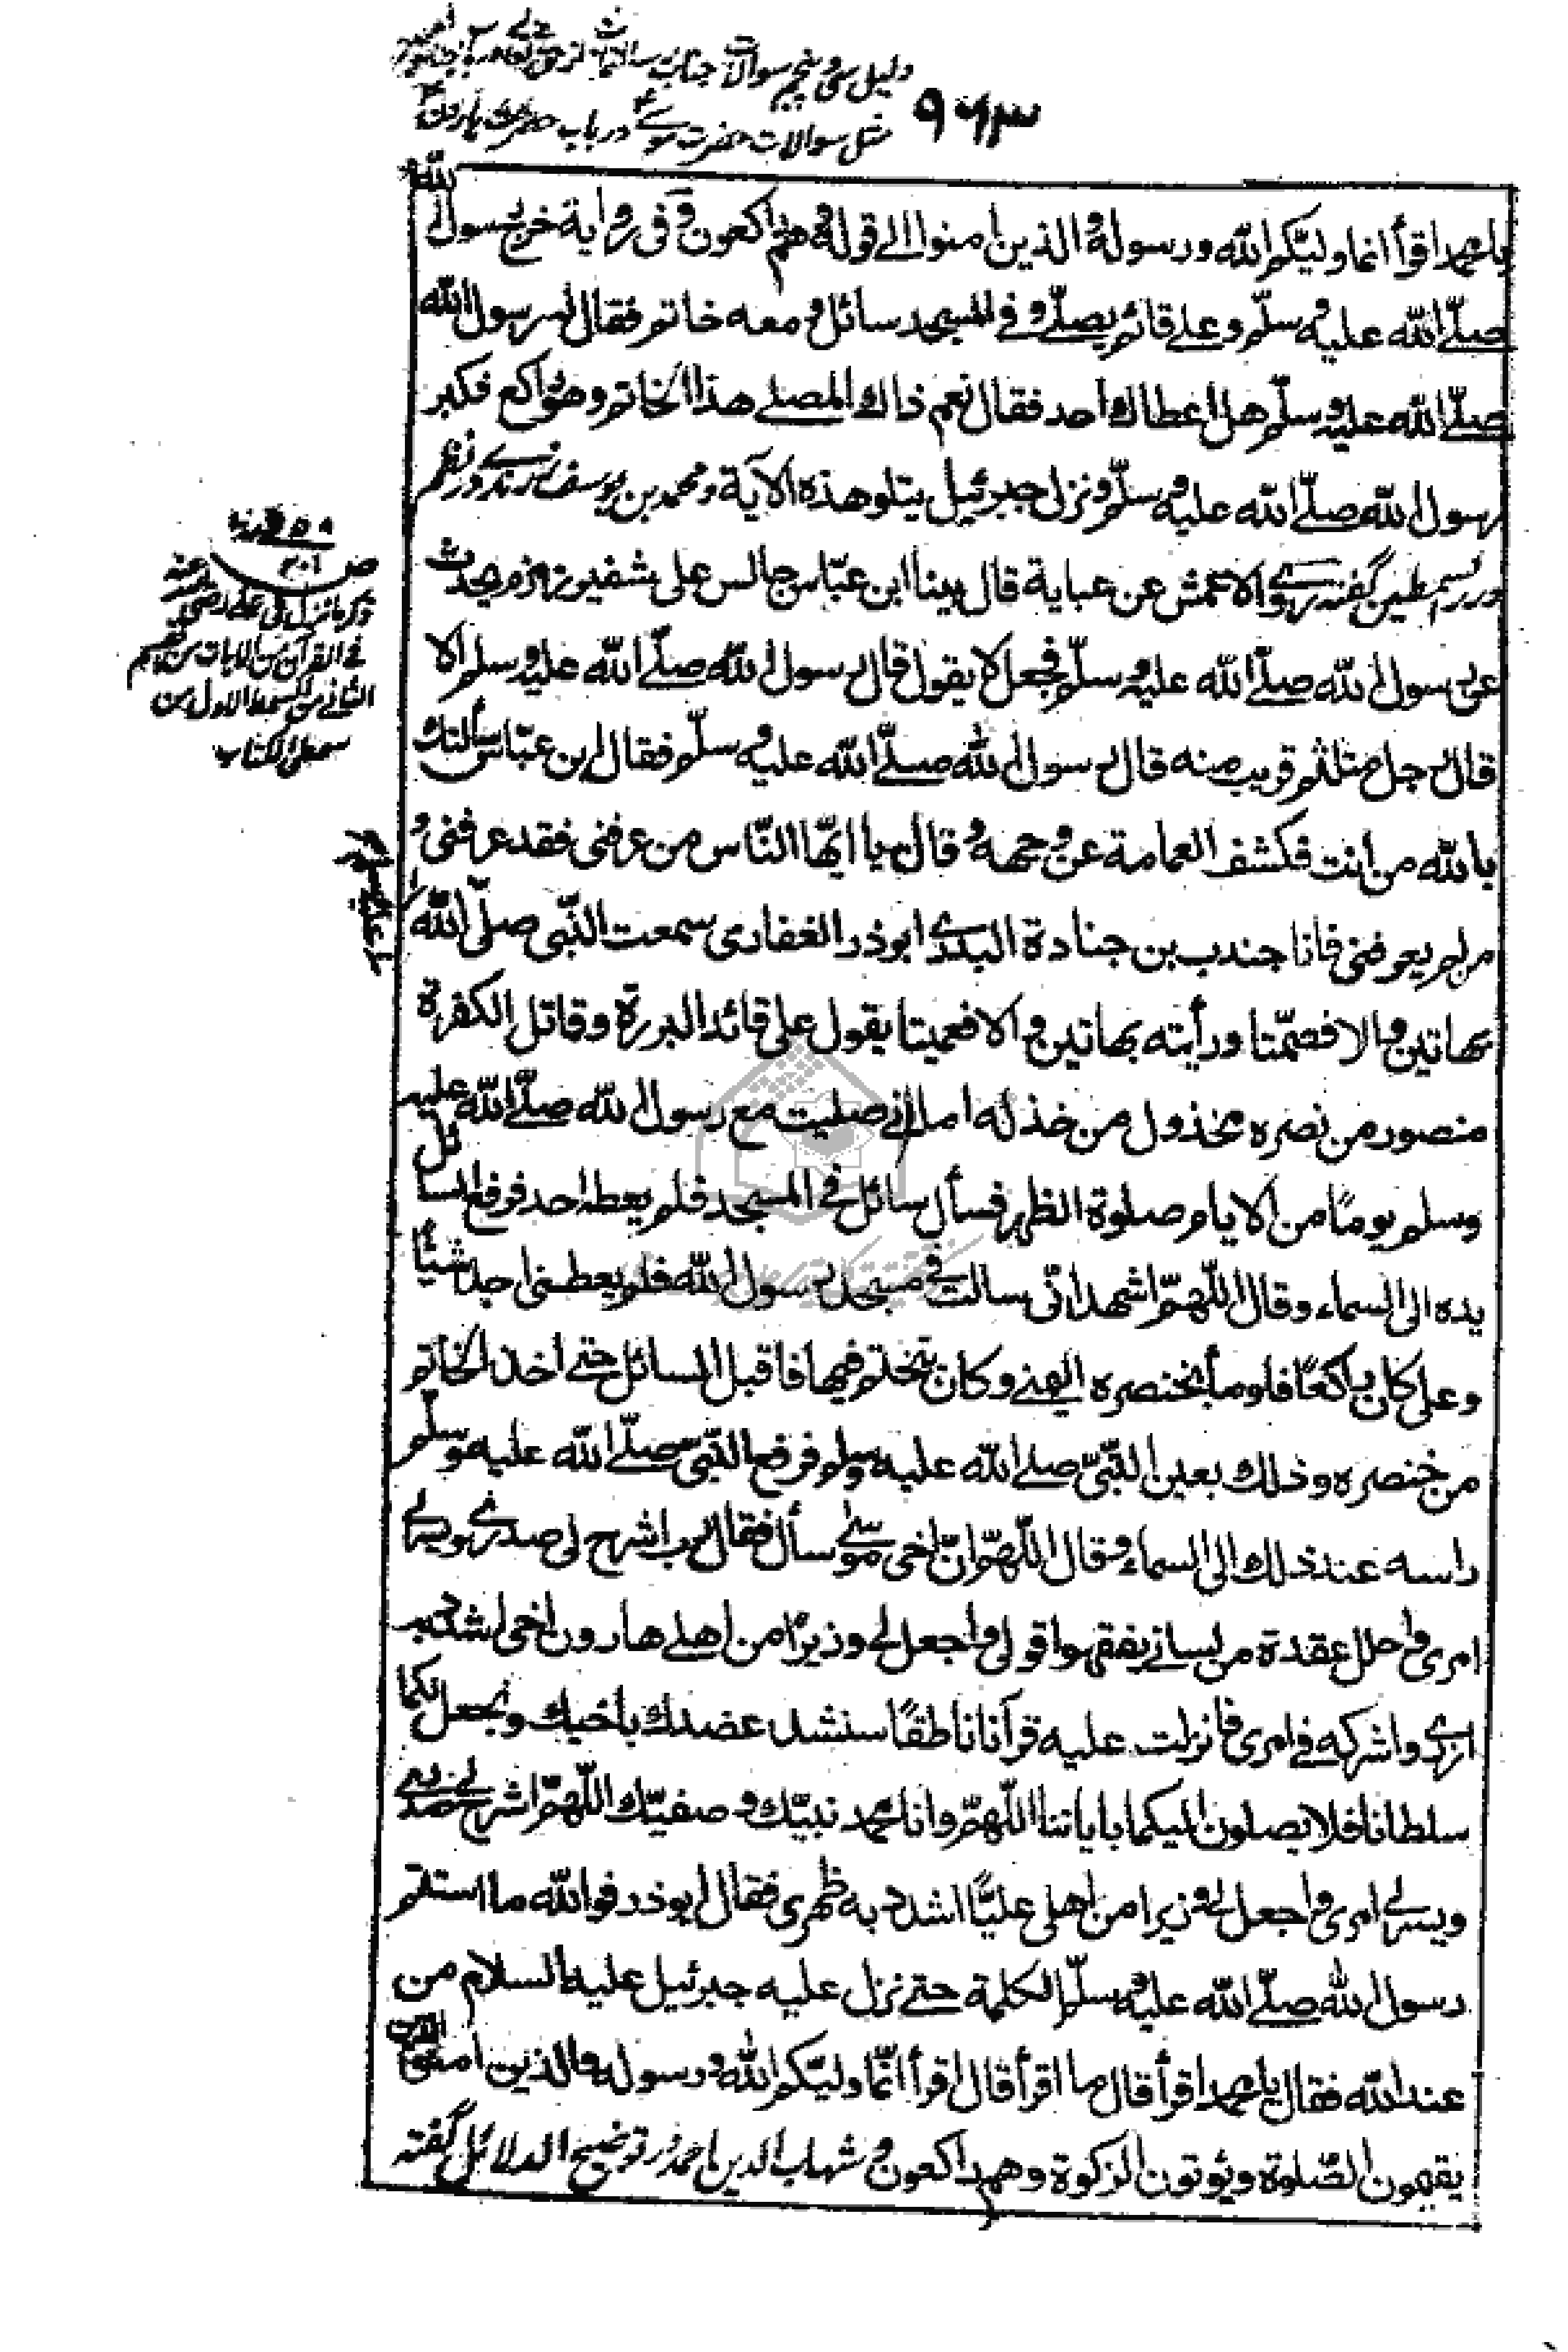 دلیل سی و پنجم سوالات جناب رسالتمآب
مثل سوالات حضرت موسے در باب حضرت هارون
۹۶۳
یا محمد اقرأ انما ولیکم الله ورسوله والذین امنوا الی قوله وهم راکعون وفی روایة خرج رسول الله
صلّے الله علیه وسلّم وعلی قائم یصلے وفے المسجد سائل ومعه خاتم فقال له رسول الله
صلّے الله علیه وسلّم هل اعطاك احد فقال نعم ذاك المصلے هذا الخاتم وهو راکع فکبر
رسول الله صلّے الله علیه وسلّم ونزل جبرئیل یتلو هذه الآیة ومحمد بن یوسف زرندے در نظم
درر السمطین گفته روے الاعمش عن عبایة قال بینا ابن عبّاس جالس علی شفیر زمزم یحدث
عن رسول الله صلّے الله علیه وسلّم فجعل لا یقول قال رسول الله صلّے الله علیه وسلم الا
قال رجل متلثم قریب منه قال رسول الله صلّے الله علیه وسلّم فقال ابن عبّاس سألتك
بالله من انت فکشف العمامة عن وجهه وقال یا ایّها النّاس من عرفنی فقد عرفنی و
من لم یعرفنی فانا جندب بن جنادة البدری ابوذر الغفاری سمعت النّبی صلّی الله
بهاتین والا فصمّتا ورأیته بهاتین والا فعمیتا یقول علی قائد البررة وقاتل الکفرة
منصور من نصره مخذول من خذله اما انے صلیت مع رسول الله صلّے الله علیه
وسلم یومًا من الایام صلوة الظهر فسأل سائل فے المسجد فلم یعطه احد فرفع السائل
یده الی السماء وقال اللّهمّ اشهد انّی سالت فی مسجد رسول الله فلم یعطنی احد شیئًا
وعلی کان راکعًا فاومأ بخنصره الیمنے وکان یتختم فیها فاقبل السائل حتے اخذ الخاتم
من خنصره وذلك بعین النّبیّ صلے الله علیه وسلم فرفع النّبیّ صلّے الله علیه وسلّم
راسه عند ذلك الی السماء وقال اللّهمّ انّ اخی موسٰے سأل فقال رب اشرح لی صدرے ویسر لے
امری واحلل عقدة من لسانے یفقهوا قولی واجعل لے وزیرًا من اهلے هارون اخی اشدد به
ازرے واشرکه فے امری فانزلت علیه قرآنا ناطقًا سنشد عضدك باخیك ونجعل لکما
سلطانا فلا یصلون الیکما بایاتنا اللّهمّ وانا محمد نبیّك وصفیّك اللّهمّ اشرح لے صدرے
ویسر لے امری واجعل لے وزیرا من اهلی علیًّا اشدد به ظهری فقال ابوذر فوالله ما استتم
رسول الله صلّے الله علیه وسلّم الکلمة حتے نزل علیه جبرئیل علیه السلام من
عند الله فقال یا محمد اقرأ قال ما اقرأ قال اقرأ انّما ولیّکم الله ورسوله والذین امنوا الذین
یقیمون الصّلوة ویؤتون الزکوة وهم راکعون و شهاب الدین احمد در توضیح الدلائل گفته
ذکر ما نزل فی علی رضی الله عنه
فے القرآن من الایات من القسم
الثانے من السمط الاول من
سمطی الکتاب